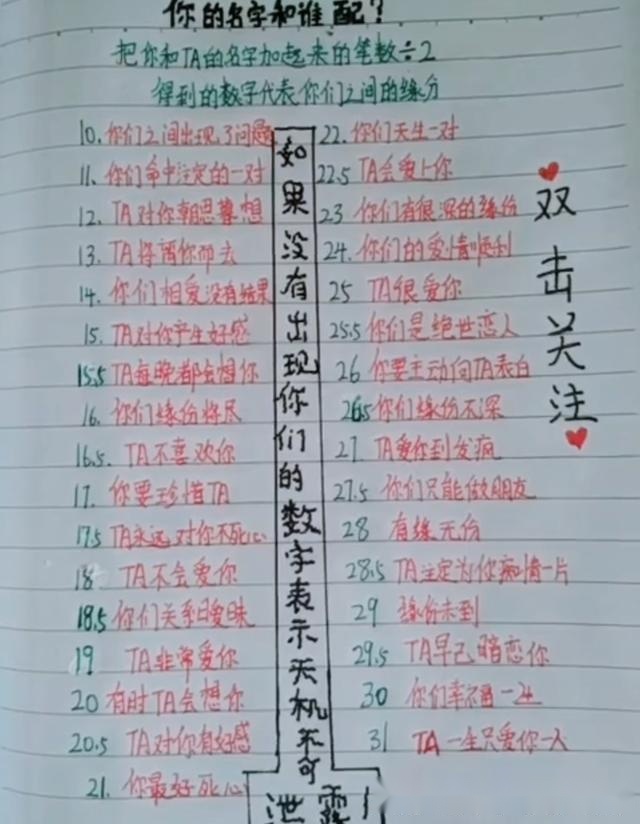 你的名字和谁配?
把你和TA的名字加起来的笔数÷2
得到的数字代表你们之间的缘分
10. 你们之间出现了问题
11. 你们命中注定的一对
12. TA对你朝思暮想
13. TA将离你而去
14. 你们相爱没有结果
15. TA对你产生好感
15.5 TA每晚都会想你
16. 你们缘份将尽
16.5. TA不喜欢你
17. 你要珍惜TA
17.5 TA永远对你不死心
18 TA不会爱你
18.5 你们关系日暧昧
19 TA非常爱你
20 有时TA会想你
20.5 TA对你有好感
21. 你最好死心
如果没有出现你们的数字表示天机不可
泄露!
22. 你们天生一对
22.5 TA会爱上你
23 你们有很深的缘份
24. 你们的爱情顺利
25 TA很爱你
25.5 你们是绝世恋人
26 你要主动向TA表白
26.5 你们缘份不深
27 TA爱你到发疯
27.5 你们只能做朋友
28 有缘无份
28.5 TA注定为你痴情一片
29 缘份未到
29.5 TA早己暗恋你
30 你们幸福一生
31 TA一生只爱你一人
双击关注